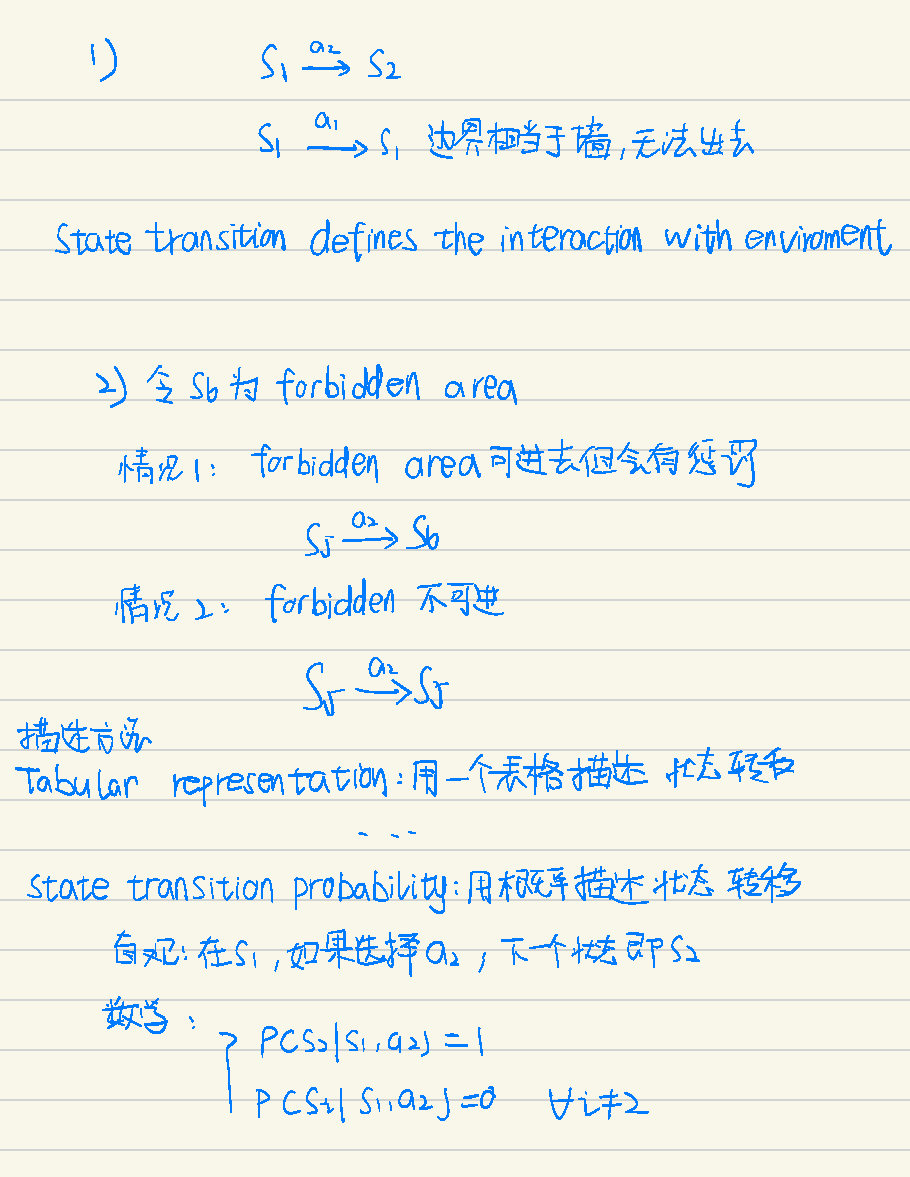 1) S₁ —a₂→ S₂
S₁ —a₁→ S₁ 边界相当于墙,无法出去
State transition defines the interaction with enviroment
2) 令 S6 为 forbidden area
情况1: forbidden area 可进去但会有惩罚
S5 —a₂→ S6
情况2: forbidden 不可进
S5 —a₂→ S5
描述方法
Tabular representation: 用一个表格描述 状态转移
... 
State transition probability: 用概率描述 状态 转移
直观: 在S₁, 如果选择a₂, 下一个状态即S₂
数学:
P(S₂|S₁,a₂)=1
P(Sᵢ|S₁,a₂)=0 ∀i≠2